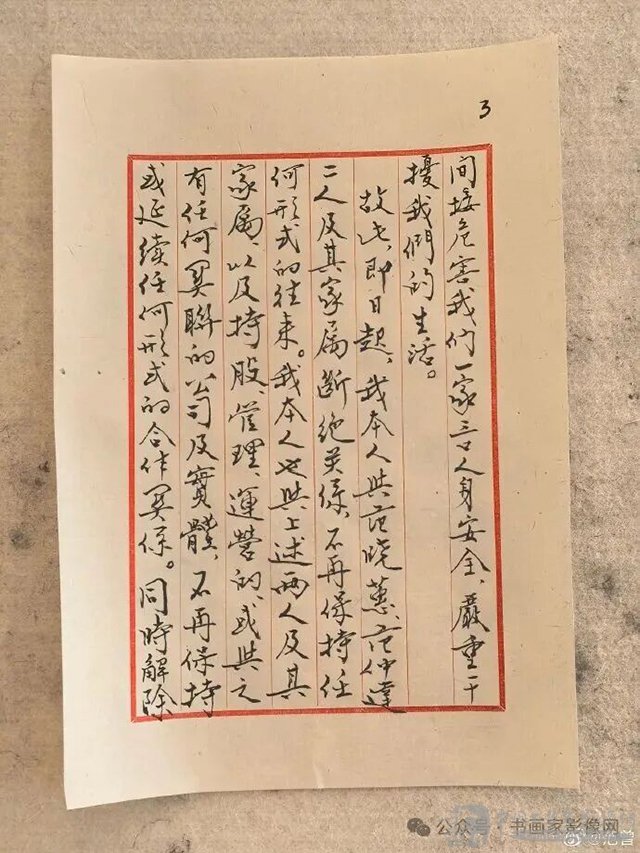 3
间接危害我们一家三口人身安全、嚴重干
擾我們的生活。
故此,即日起,我本人與范晓蕙、范仲達
二人及其家属斷绝关係,不再保持任
何形式的往来。我本人也與上述两人及其
家属、以及持股、管理、運营的、或與之
有任何関聯的公司及實體,不再保持
或延续任何形式的合作関係。同時解除
公众号·书画家影像网